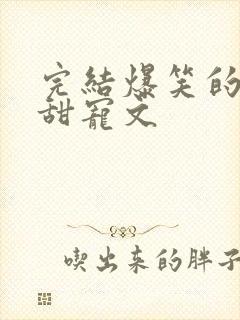 完結爆笑的
甜寵文
喫出来的胖子